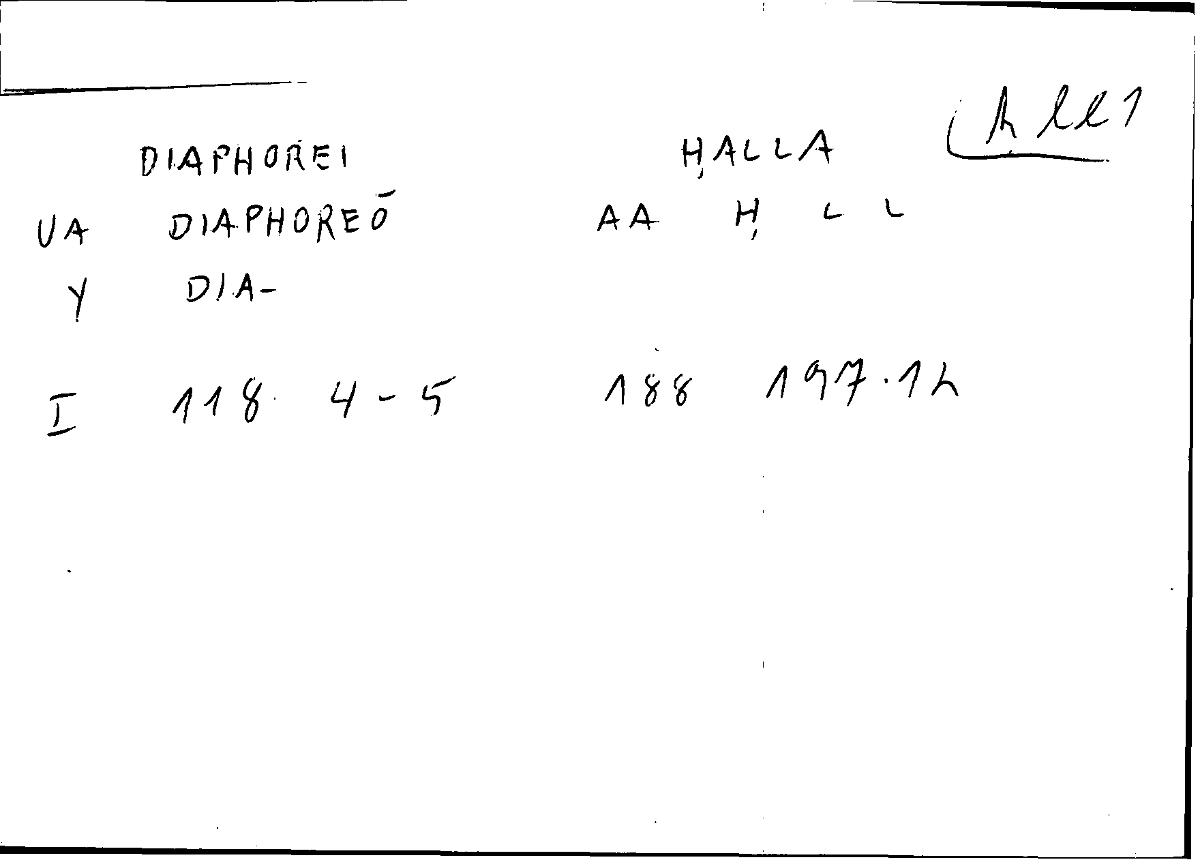 ḥ ll 1
DIAPHOREI ḤALLA
UA DIAPHOREŌ AA Ḥ L L
Y DIA-
I 118. 4-5 188 197.12